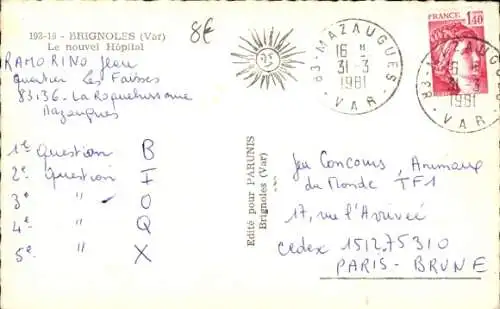 193-18 - BRIGNOLES (Var)
Le nouvel Hôpital
8€
RAMORINO Jean
Quartier Les Faïsses
83136 - La Roquebrussanne
Mazaugues
1re Question B
2e question I
3e " O
4e " Q
5e " X
Edité pour PARUNIS
Brignoles (Var)
83 - MAZAUGUES
16 H
31-3
1981
VAR
FRANCE
1,40
83 - MAZAUGUES
16 H
1981
VAR
Jeu Concours, Animaux
du Monde TF1
17, rue l'Arrivée
Cedex 1512.75310
PARIS - BRUNE